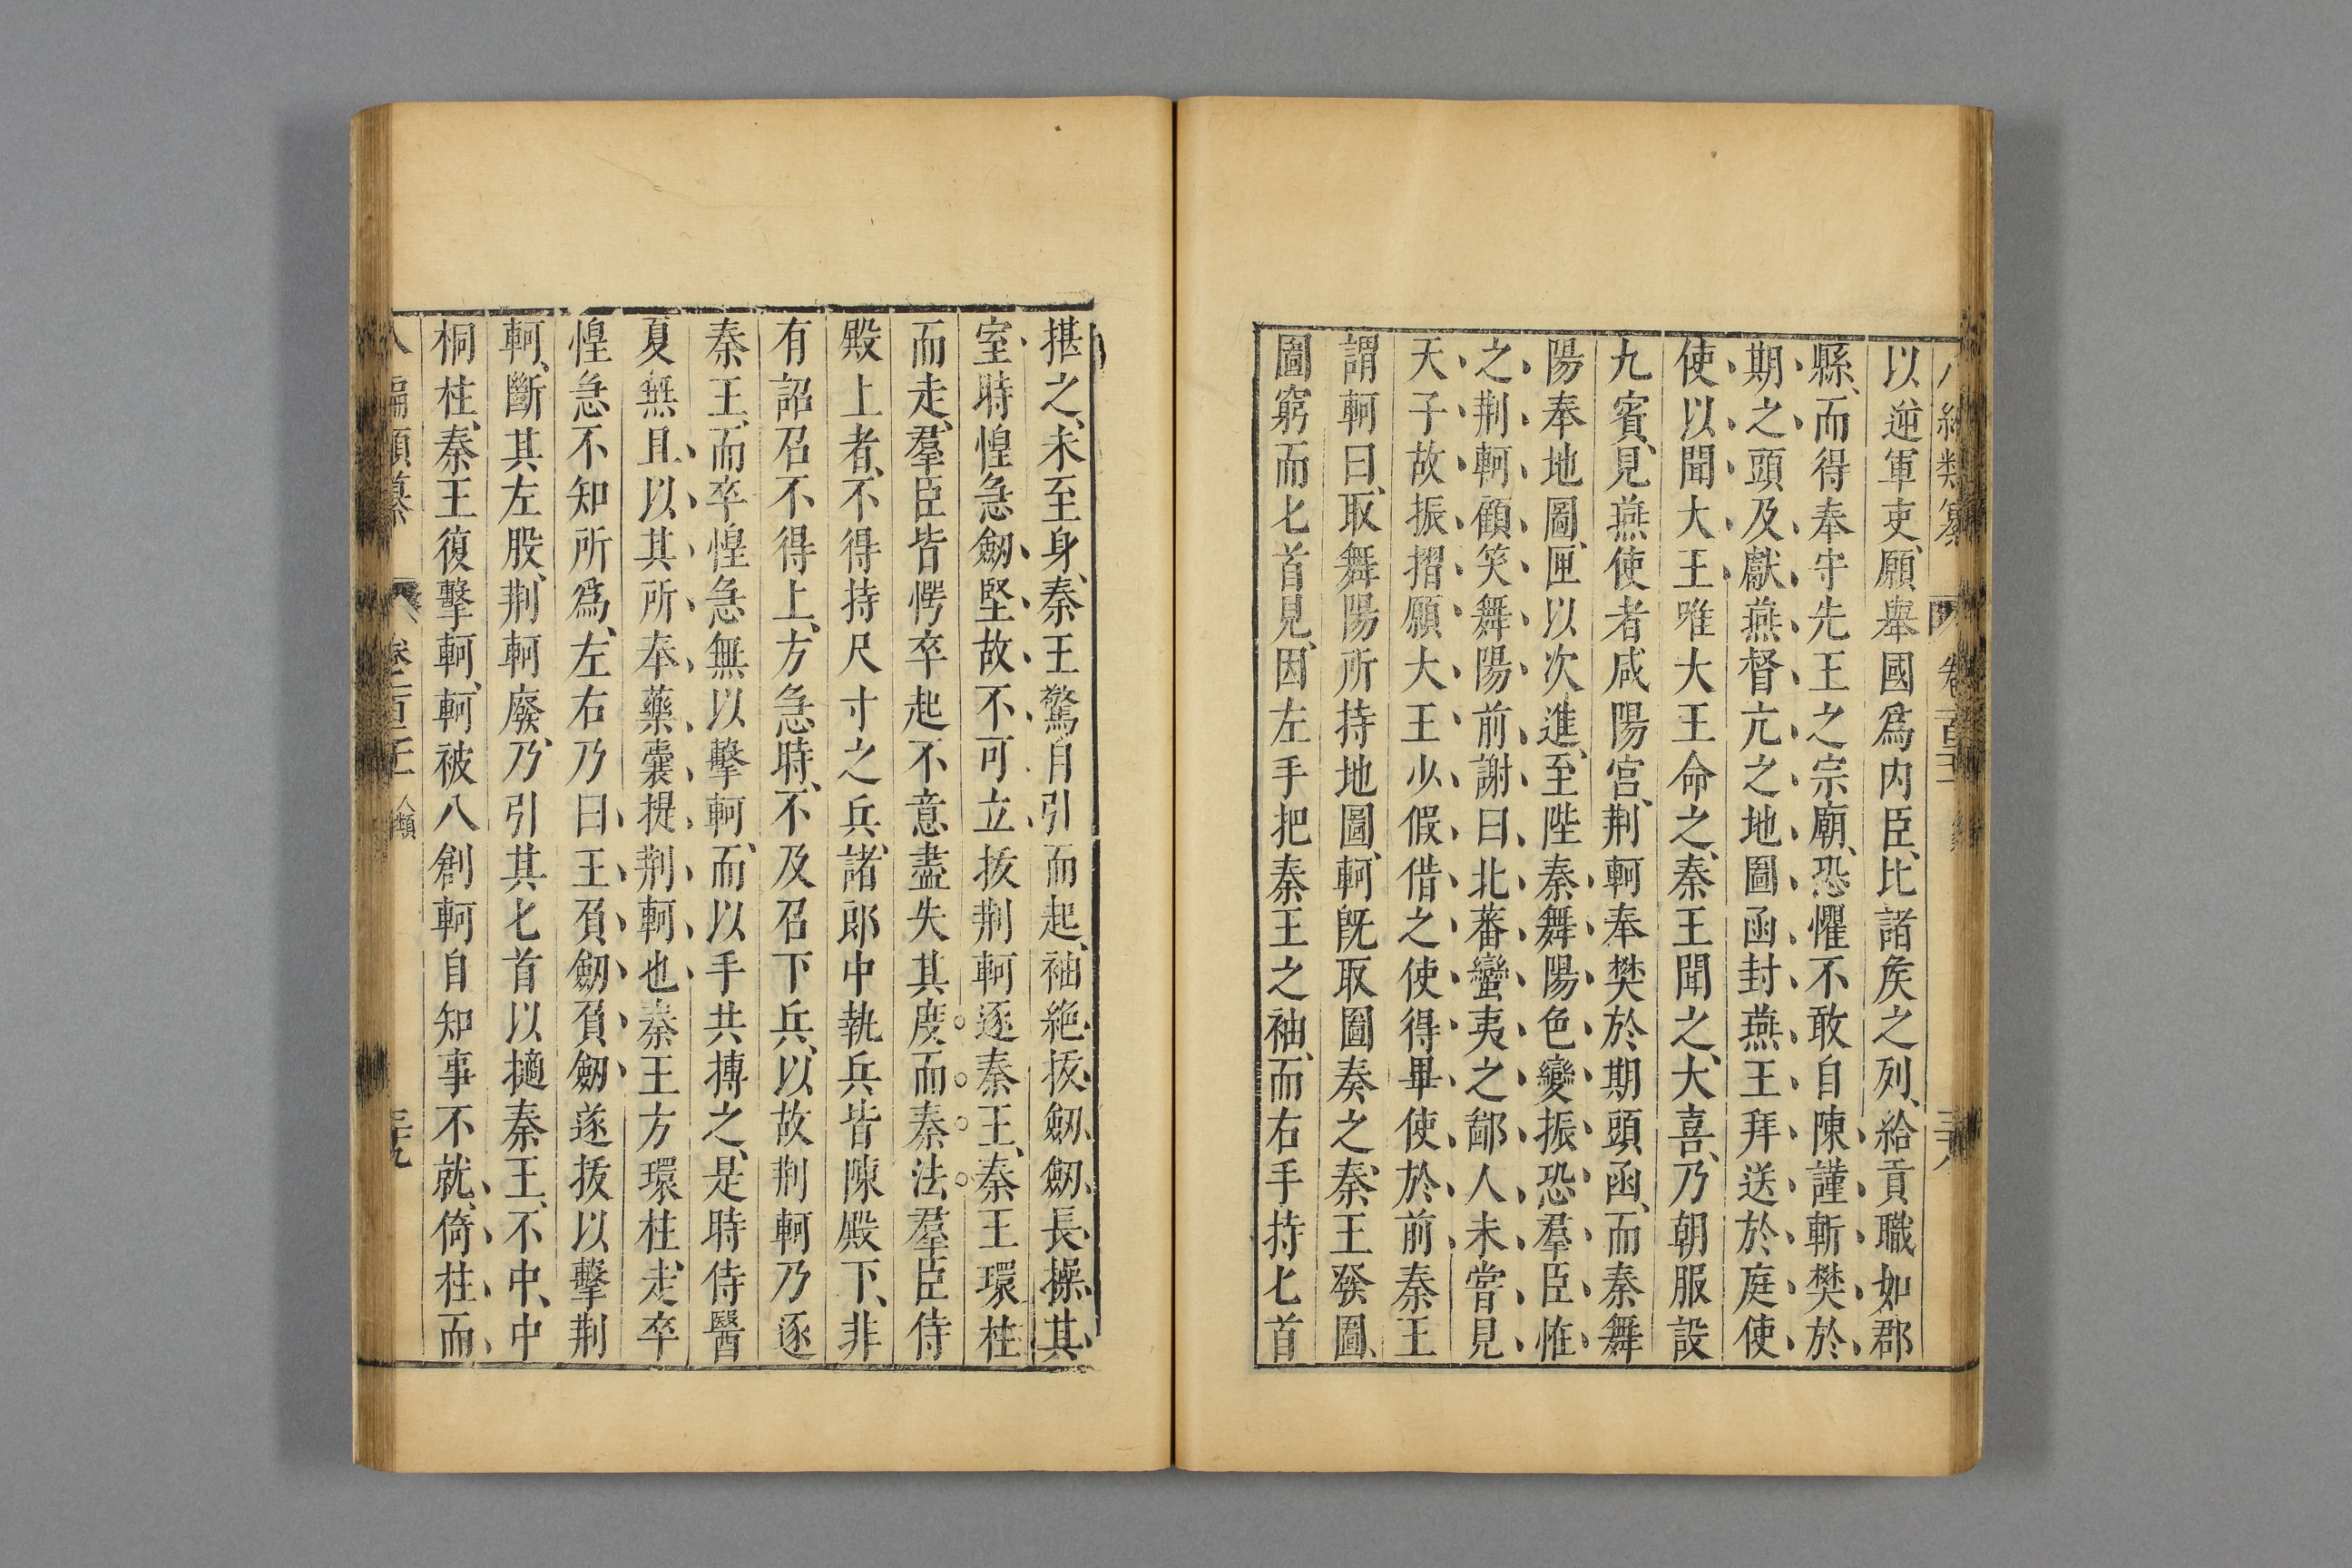 以逆軍吏、願舉國爲内臣、比諸矦之列、給貢職如郡
縣、而得奉守先王之宗廟、恐懼不敢自陳、謹斬樊於
期之頭及獻燕督亢之地圖函封燕王拜送於庭使
使以聞大王唯大王命之、秦王聞之、大喜、乃朝服設
九賓、見燕使者咸陽宫、荆軻奉樊於期頭函、而秦舞
陽奉地圖匣以次進、至陛秦舞陽色變振恐羣臣恠
之荆軻顧笑舞陽前謝曰北蕃蠻夷之鄙人未嘗見
天子故振摺願大王少假借之使得畢使於前秦王
謂軻曰、取舞陽所持地圖、軻旣取圖奏之秦王發圖、
圖窮而匕首見、因左手把秦王之袖、而右手持匕首
揕之、未至身、秦王驚自引而起、袖絶、拔劒、劒長、操其
室、時惶急、劒堅故不可立拔荆軻逐秦王、秦王環柱
而走、羣臣皆愕卒起不意盡失其度而秦法羣臣侍
殿上者、不得持尺寸之兵、諸郎中執兵皆陳殿下、非
有詔召不得上、方急時、不及召下兵、以故荆軻乃逐
秦王、而卒惶急無以擊軻、而以手共搏之、是時侍醫
夏無且、以其所奉藥囊提荆軻也秦王方環柱走、卒
惶急不知所爲、左右乃曰王負劒負劒遂拔以擊荆
軻、斷其左股、荆軻廢、乃引其匕首以擿秦王、不中、中
桐柱、秦王復擊軻、軻被八創軻自知事不就、倚柱而